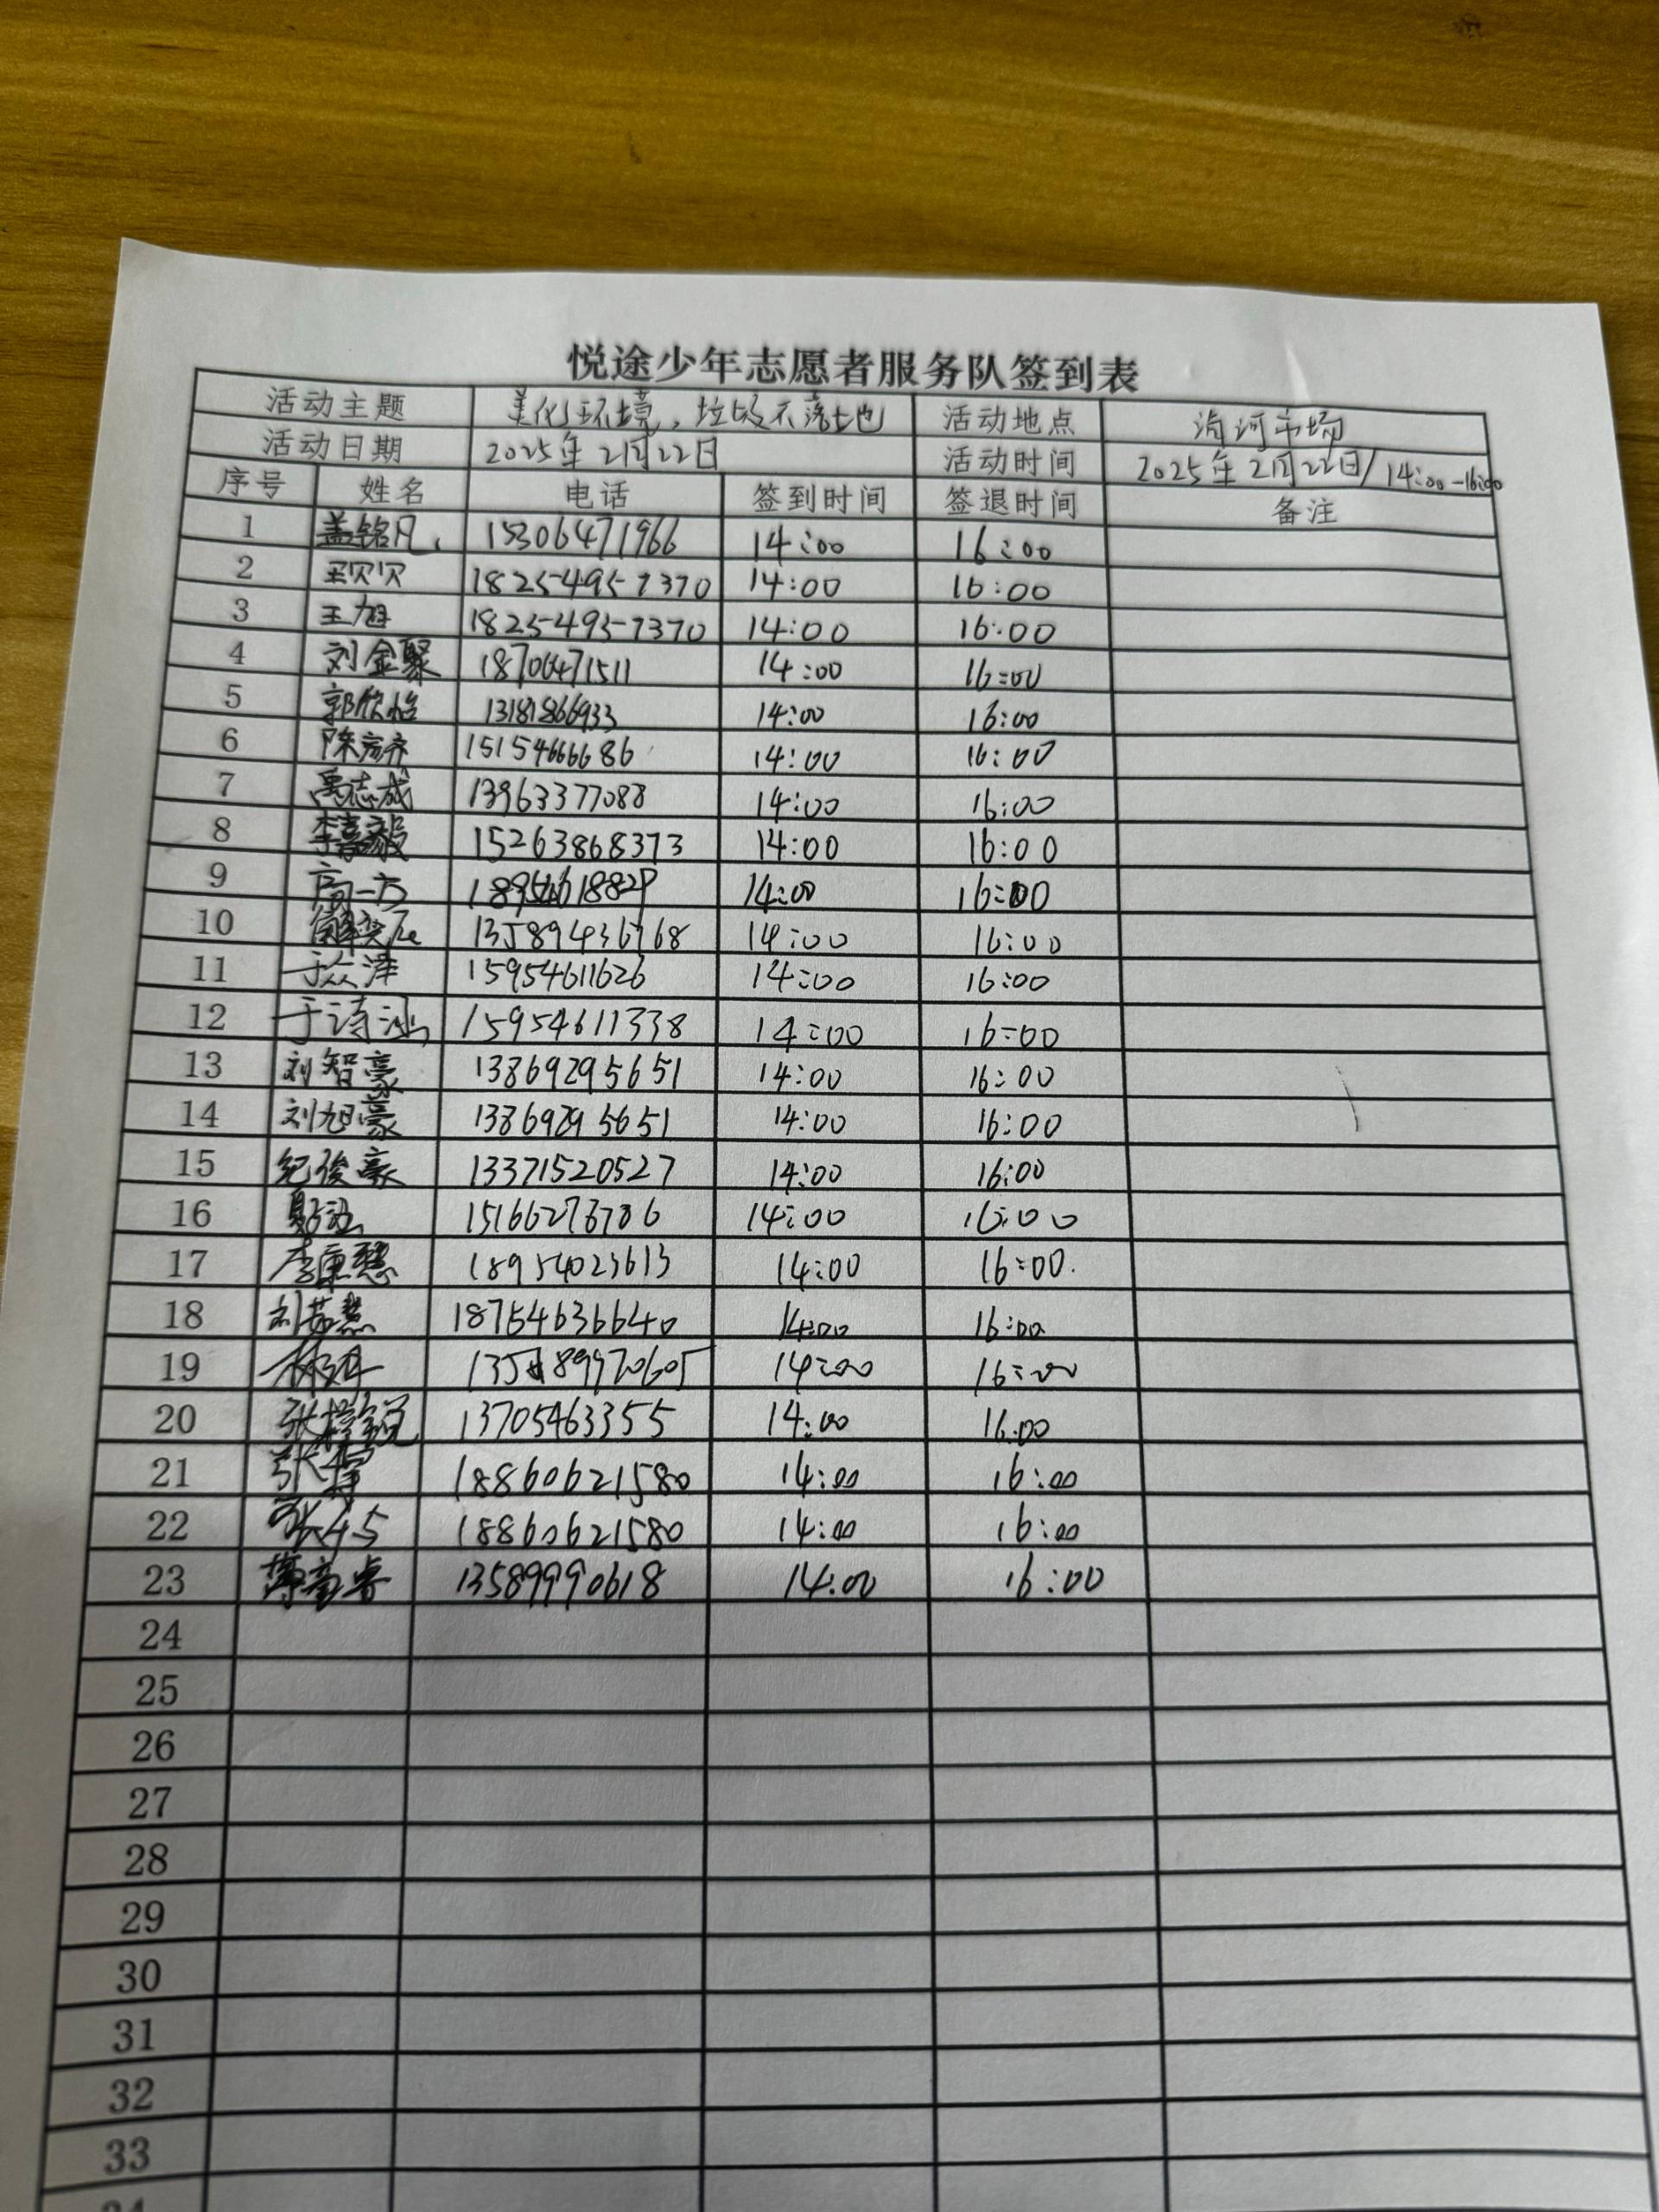 悦途少年志愿者服务队签到表
活动主题 美化环境，垃圾不落地 活动地点 市场
活动日期 2025年2月22日 活动时间 2025年2月22日/14:00-16:00
序号 姓名 电话 签到时间 签退时间 备注
1 盖铭凡 15306471966 14:00 16:00
2 18254957370 14:00 16:00
3 王旭 18254957370 14:00 16:00
4 刘金聚 18706471511 14:00 16:00
5 郭欣怡 13181866933 14:00 16:00
6 陈彦齐 15154666686 14:00 16:00
7 禹志成 13963377088 14:00 16:00
8 李嘉毅 15263868373 14:00 16:00
9 高一方 14:00 16:00
10 14:00 16:00
11 于众泽 15954611626 14:00 16:00
12 于诗涵 15954611338 14:00 16:00
13 刘智豪 13869295651 14:00 16:00
14 刘旭豪 13869295651 14:00 16:00
15 纪俊豪 13371520527 14:00 16:00
16 14:00 16:00
17 李康慧 18954023613 14:00 16:00
18 刘茹慧 18754636640 14:00 16:00
19 14:00 16:00
20 13705463355 14:00 16:00
21 18860621580 14:00 16:00
22 18860621580 14:00 16:00
23 薄高睿 13589990618 14:00 16:00
24
25
26
27
28
29
30
31
32
33
34